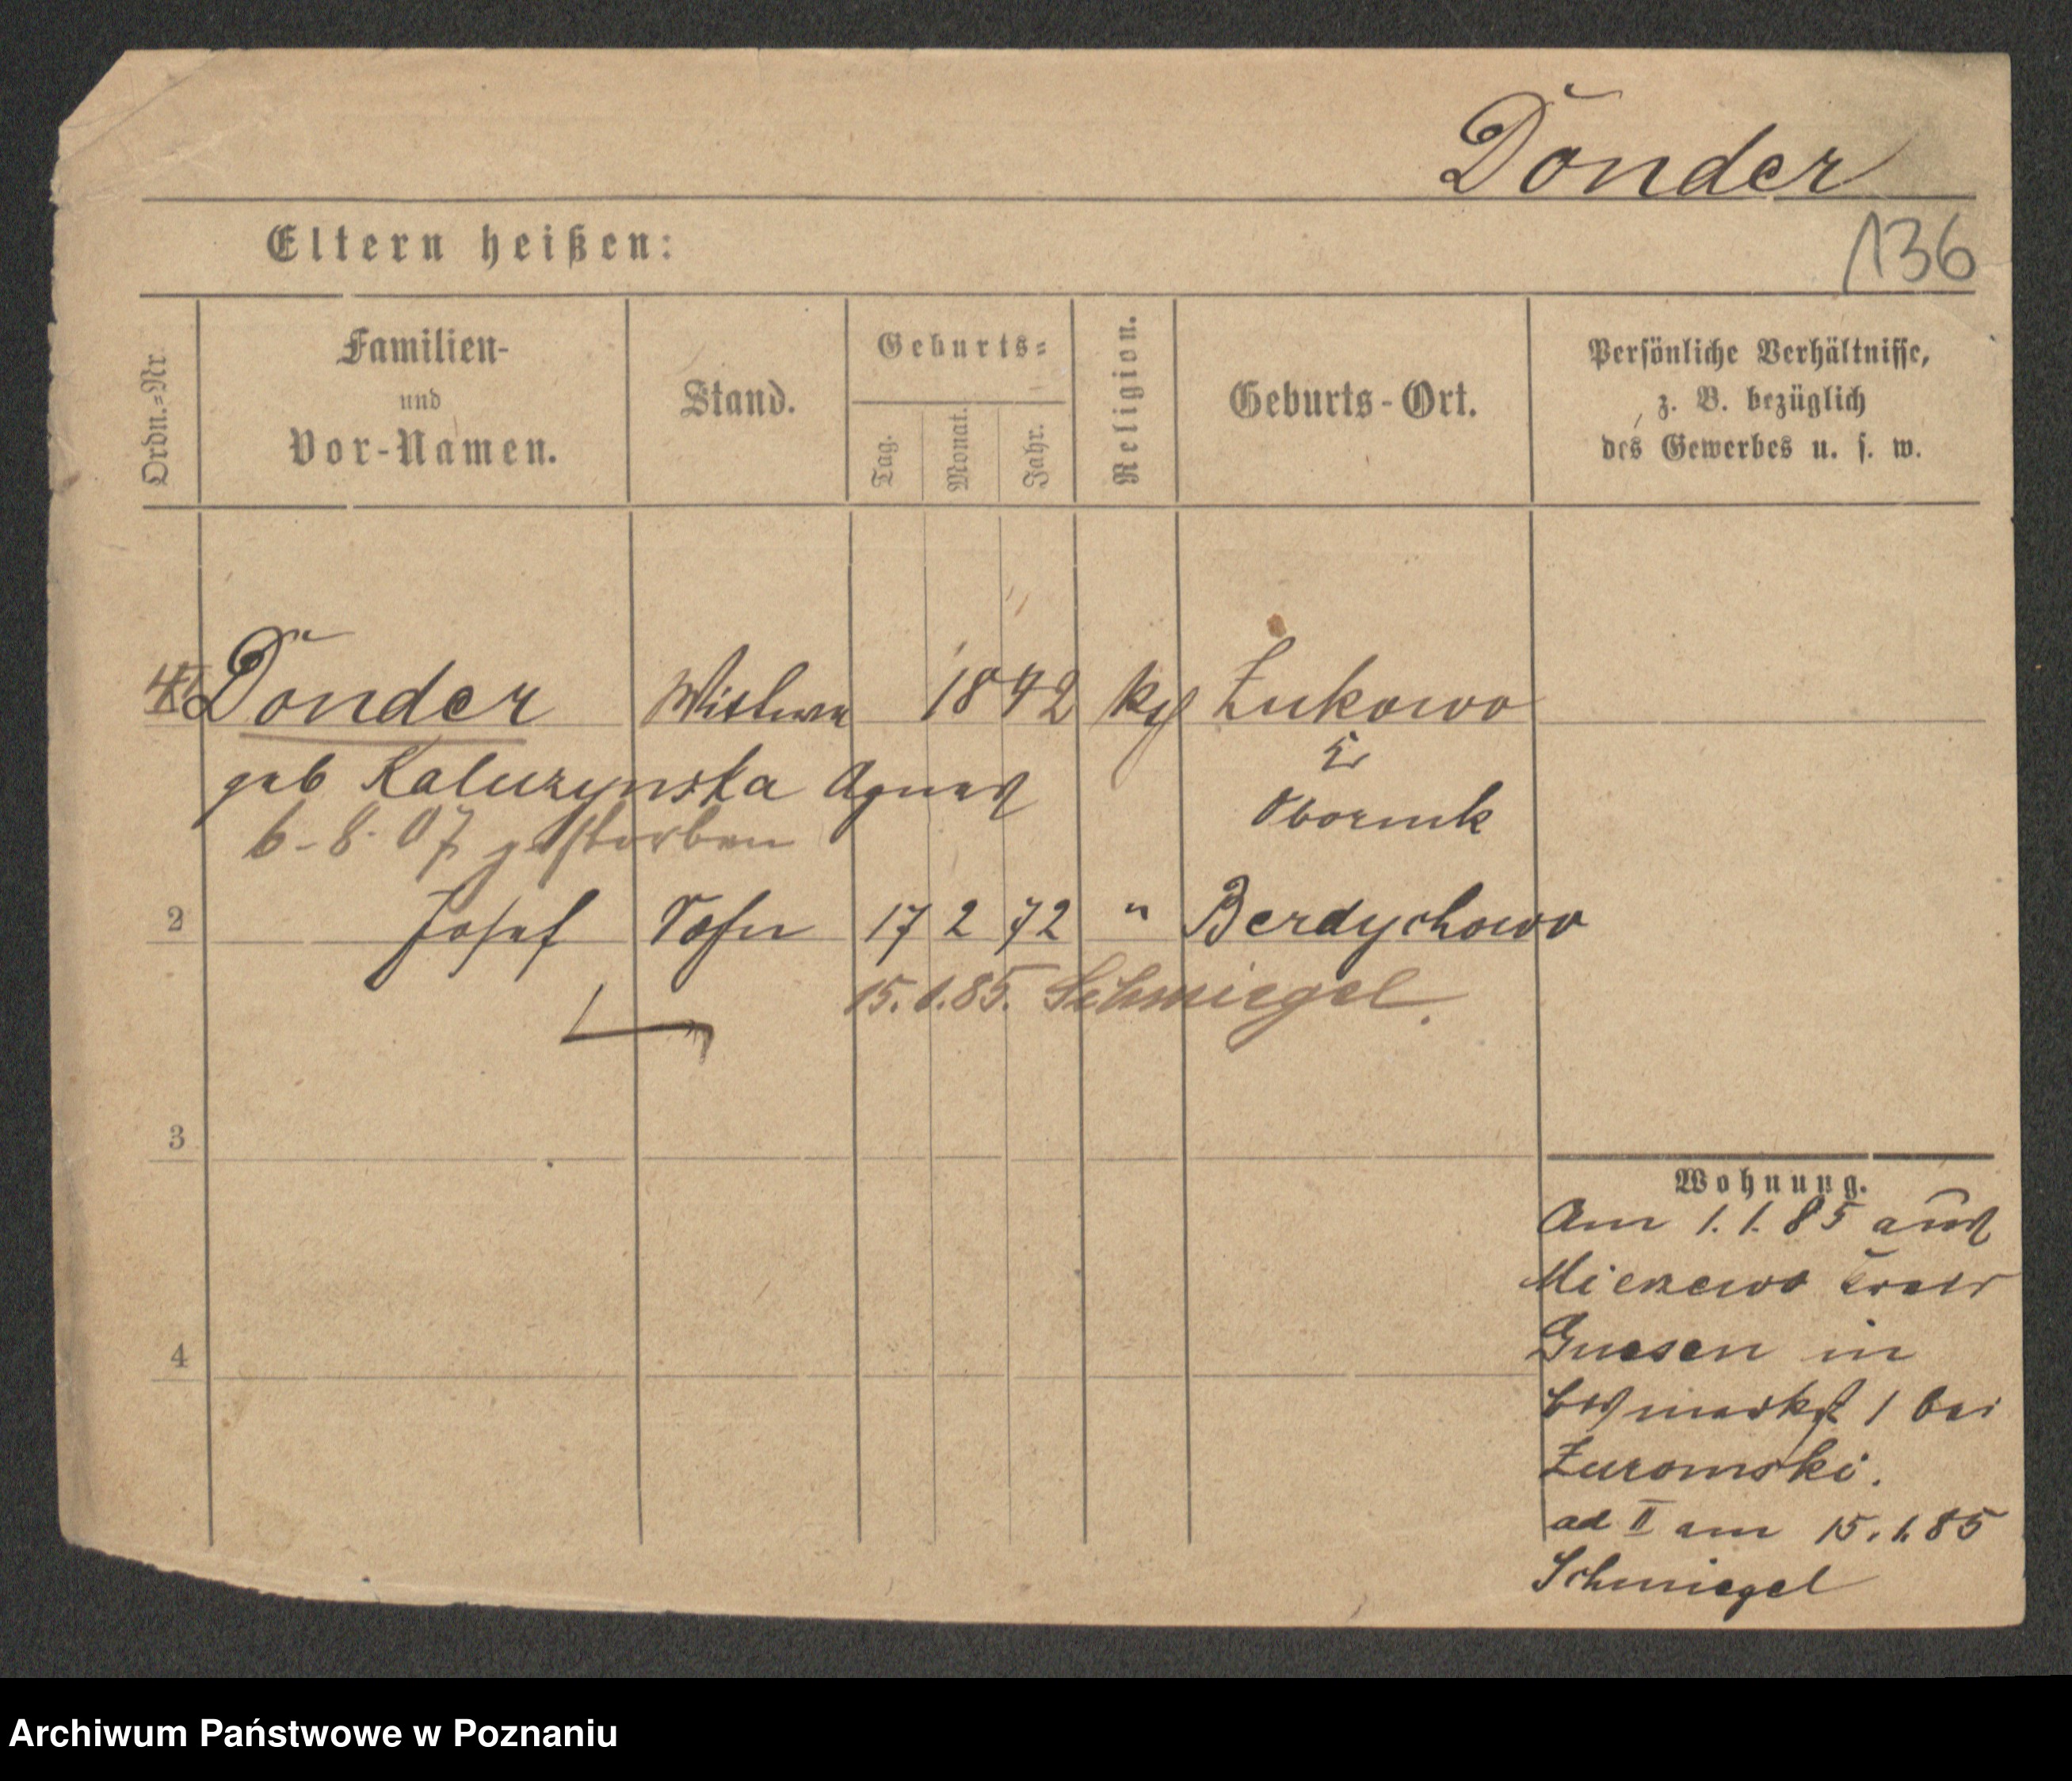 Donder
136
Eltern heißen:
Ordn.=Nr.
Familien-
und
Vor-Namen.
Stand.
Geburts=
Tag.
Monat.
Jahr.
Religion.
Geburts-Ort.
Persönliche Verhältnisse,
z. B. bezüglich
des Gewerbes u. s. w.
Donder Wittwe 1842 Zukowo
geb Kaluzynska Agnes
Obornik
6-8-07 gestorben
2 Josef Sohn 17 2 72 " Berdychowo
15.1.85. Schmiegel.
3
4
Wohnung.
Am 1.1.85 aus
Gnesen in
1 bei
Zuromski.
ad II am 15.1.85
Schmiegel
Archiwum Państwowe w Poznaniu